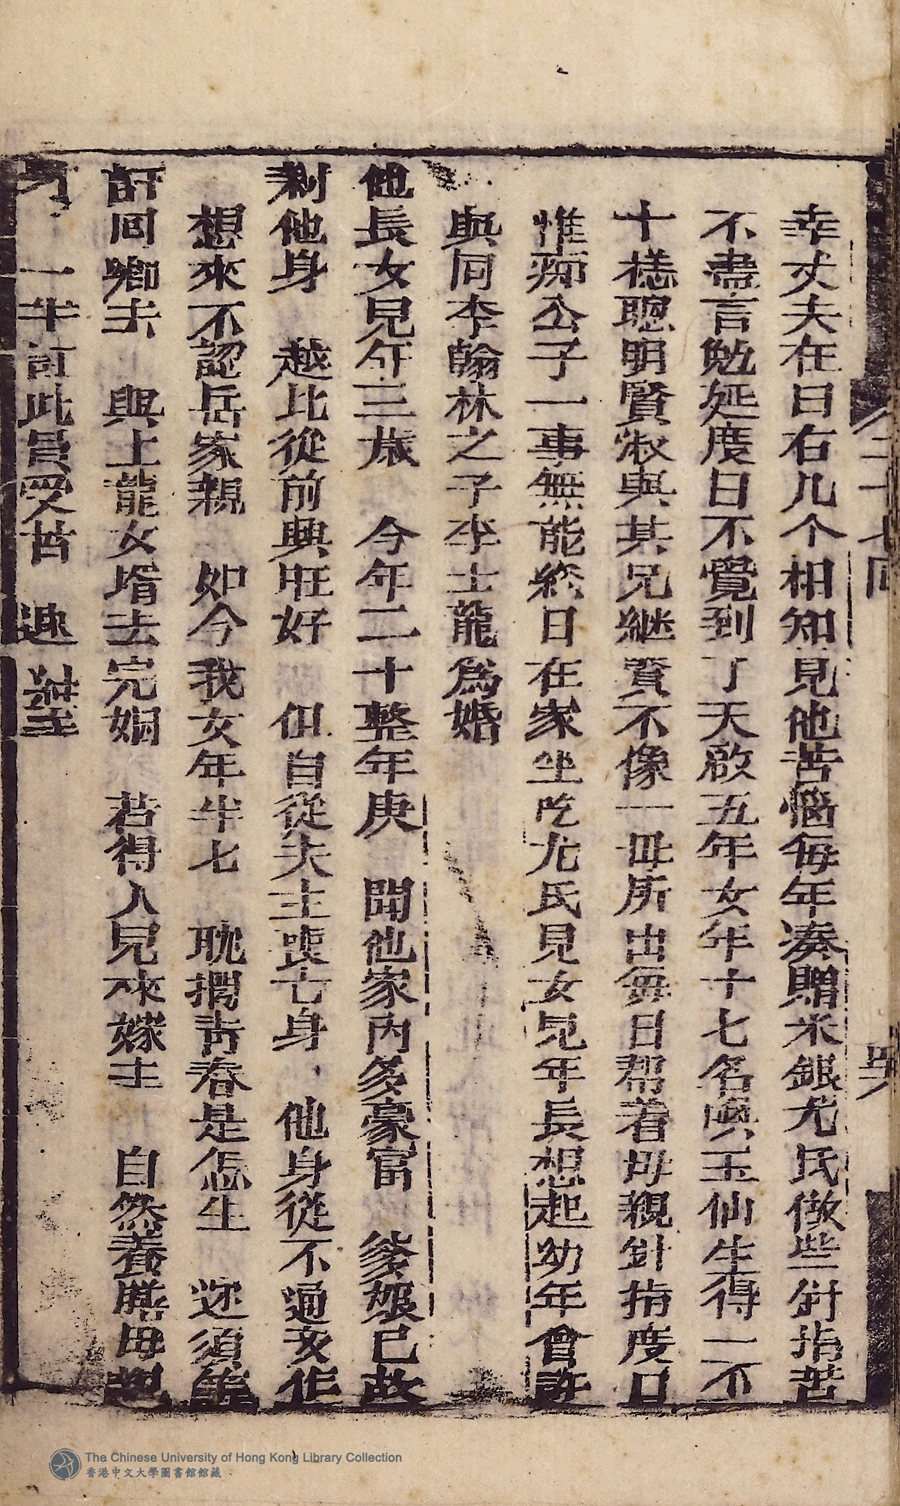 幸丈夫在日右几个相知見他苦惱每年凑贈米銀尤氏做些針指苦
不盡言勉延度日不覺到了天啟五年女年十七名喚玉仙生得一不
十樣聰明賢淑與其兄継賢不像一毋所出每日帮着母親針指度口
惟痴公子一事無能終日在家坐吃尤氏見女兒年長想起幼年曾許
與同李翰林之子李士龍為婚
他長女兒年三歲 今年二十整年庚 聞他家內多豪富 爹娘已故
剩他身 越比從前興旺好 但自從夫主喪亡身 他身從不通友作
想來不認岳家親 如今我女年半七 耽擱青春是怎生 还須
回鄉去 與上龍女壻去完姻 若得人兒來嫁主 自然養膳母
一半 此 受苦
二十七回
The Chinese University of Hong Kong Library Collection
香港中文大學圖書館館藏